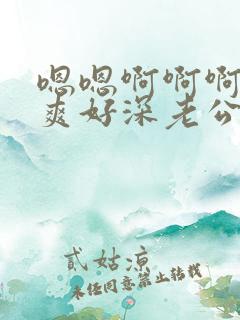 嗯嗯啊啊啊
爽好深老公
贰姑凉
未经同意禁止转载